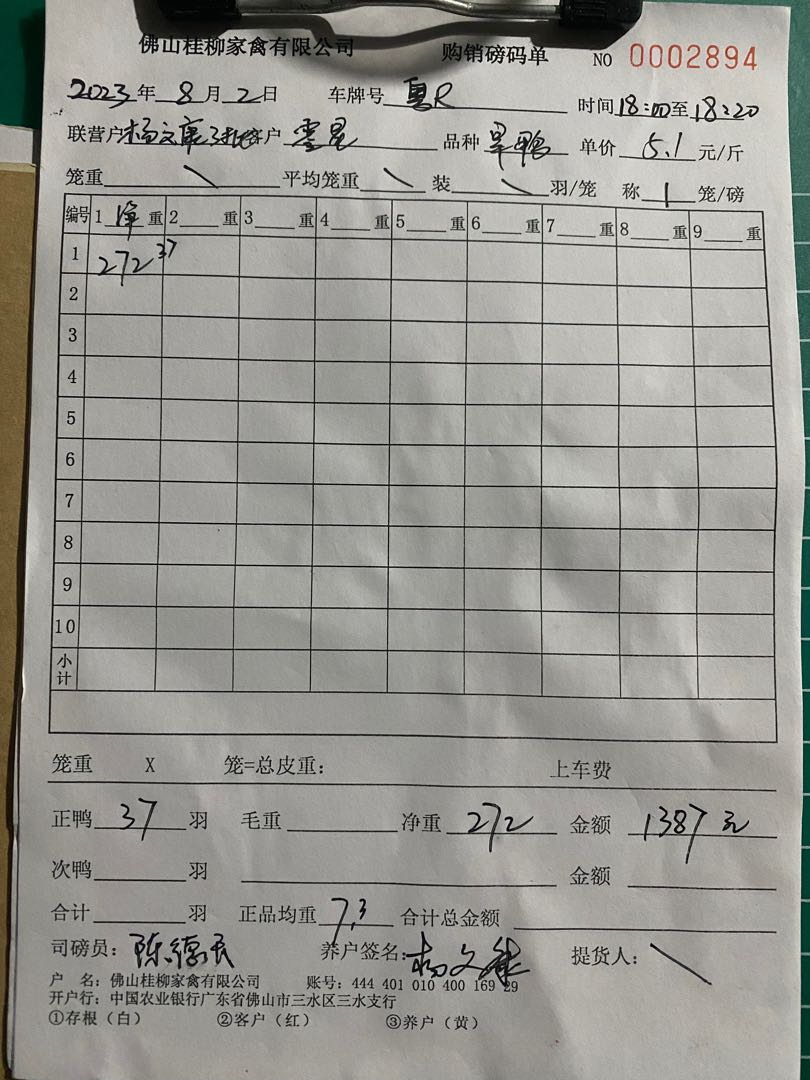 佛山桂柳家禽有限公司 购销磅码单 NO 0002894
2023年8月2日 车牌号 粤R 时间18:00至18:20
联营户杨文康 客户 零星 品种 旱鸭 单价 5.1 元/斤
笼重 \ 平均笼重 \ 装 \ 羽/笼 称 1 笼/磅
编号 1 净 重 2 重 3 重 4 重 5 重 6 重 7 重 8 重 9 重
1 272 37
2
3
4
5
6
7
8
9
10
小计
笼重 X 笼=总皮重: 上车费
正鸭 37 羽 毛重 净重 272 金额 1387元
次鸭 羽 金额
合计 羽 正品均重 7.3 合计总金额
司磅员: 陈德民 养户签名: 杨文康 提货人: \
户 名: 佛山桂柳家禽有限公司 账号: 444 401 010 400 169 29
开户行: 中国农业银行广东省佛山市三水区三水支行
①存根(白) ②客户(红) ③养户(黄)